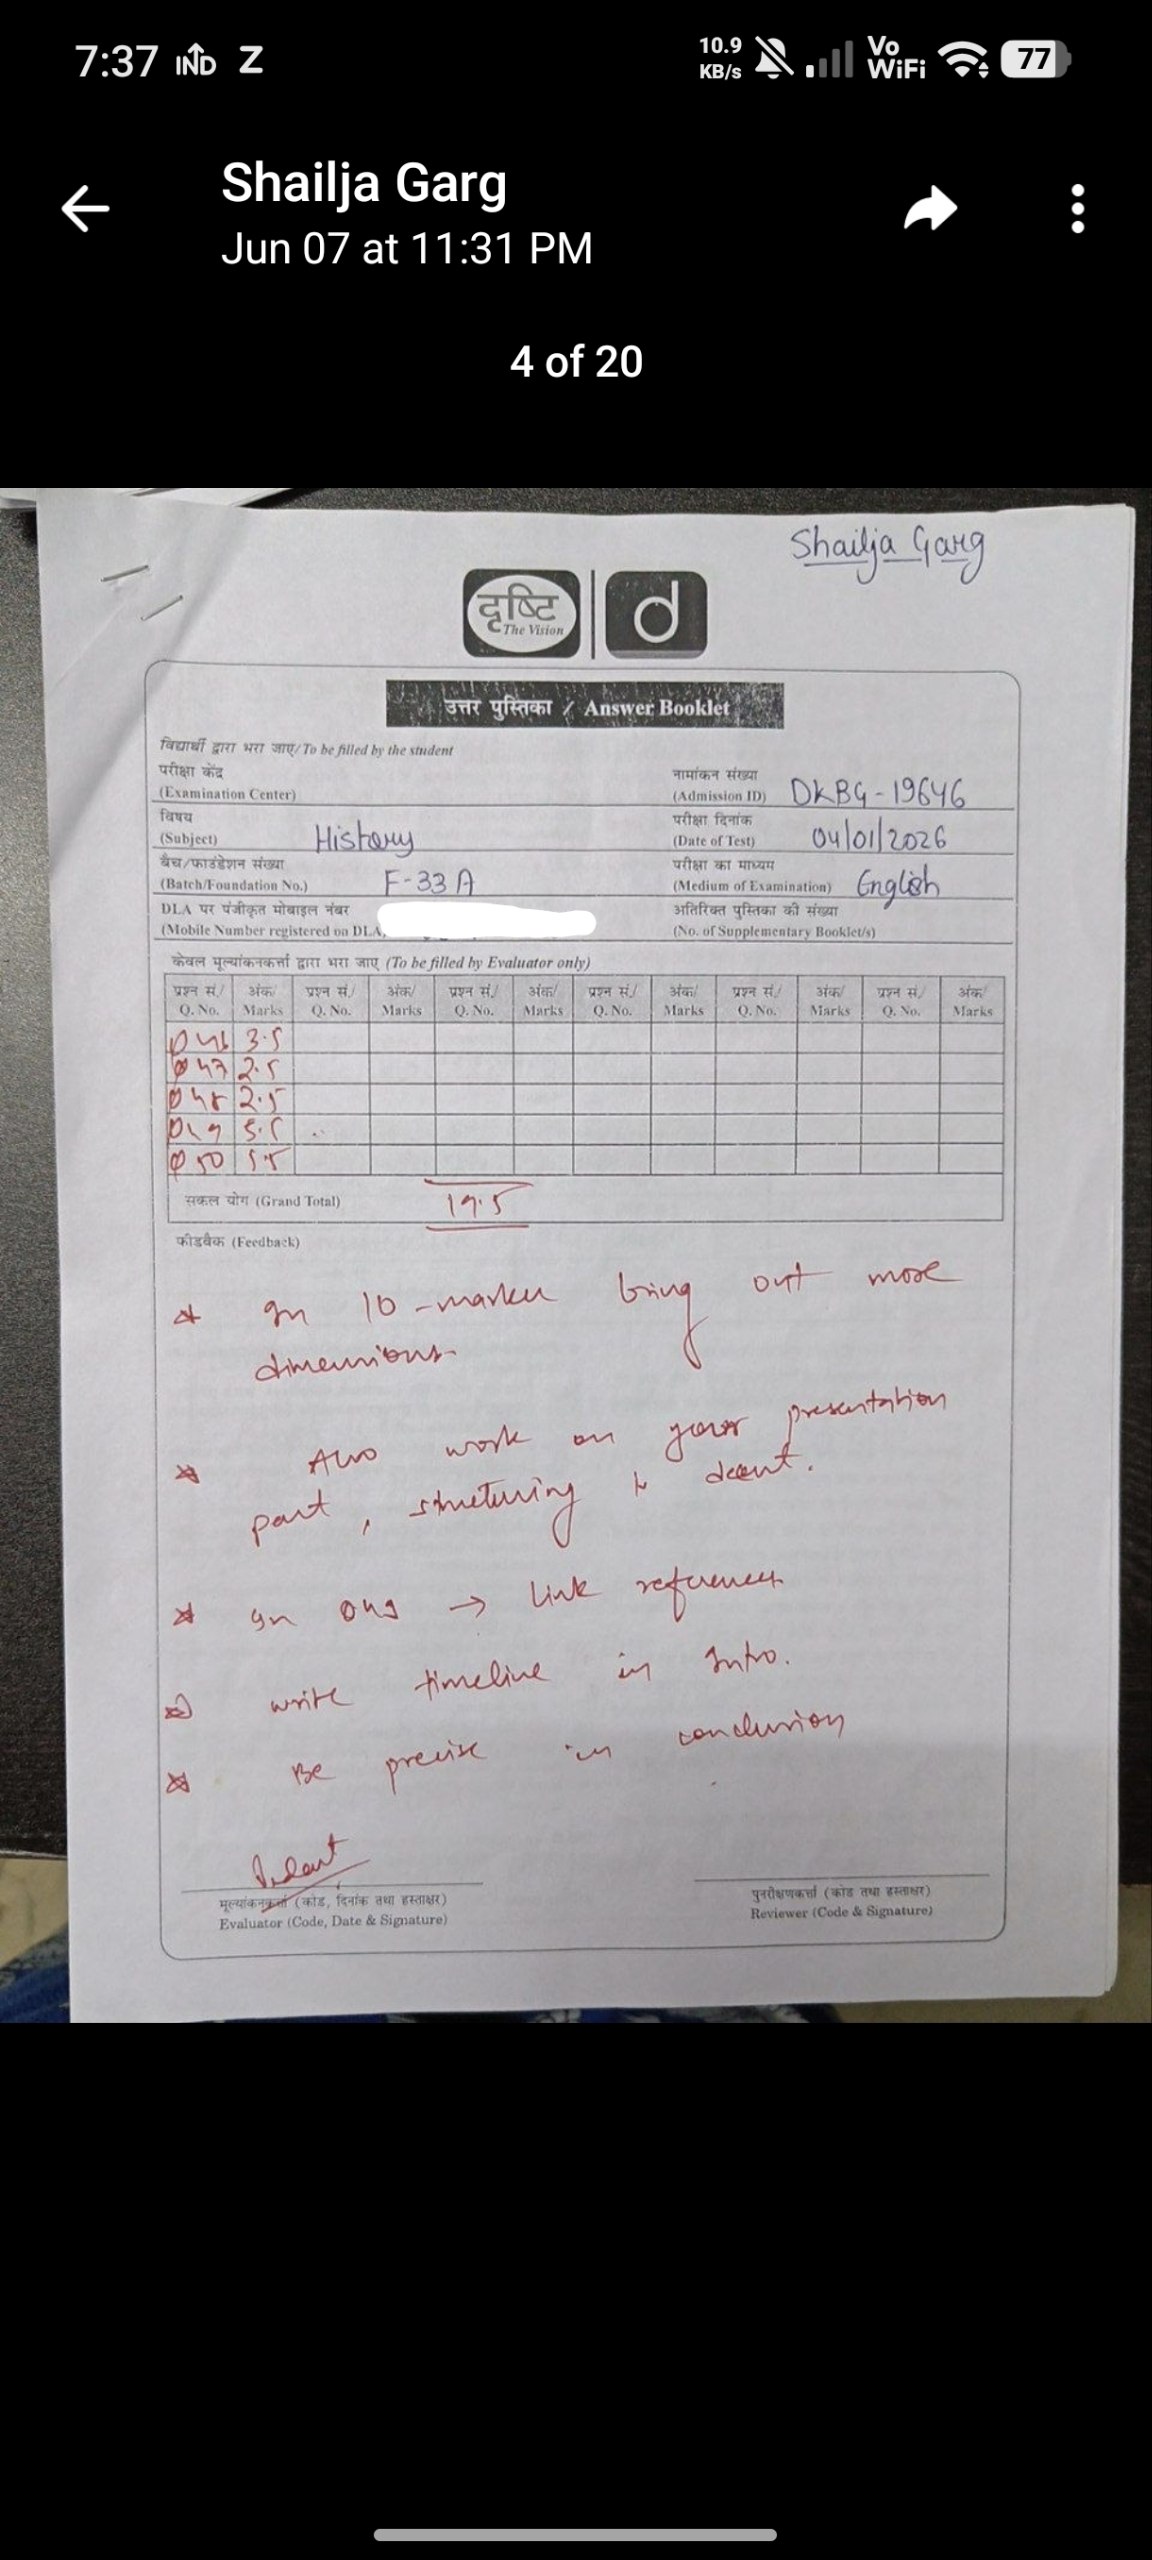 7:37 IND Z 10.9 KB/s Vo WiFi 77
Shailja Garg
Jun 07 at 11:31 PM
4 of 20
Shailja Garg
दृष्टि
The Vision
d
उत्तर पुस्तिका / Answer Booklet
विद्यार्थी द्वारा भरा जाए/To be filled by the student
परीक्षा केंद्र
(Examination Center)
नामांकन संख्या
(Admission ID) DKBG-19646
विषय
(Subject) History
परीक्षा दिनांक
(Date of Test) 04/01/2026
बैच/फाउंडेशन संख्या
(Batch/Foundation No.) F-33 A
परीक्षा का माध्यम
(Medium of Examination) English
DLA पर पंजीकृत मोबाइल नंबर
(Mobile Number registered on DLA
अतिरिक्त पुस्तिका की संख्या
(No. of Supplementary Booklet/s)
केवल मूल्यांकनकर्त्ता द्वारा भरा जाए (To be filled by Evaluator only)
प्रश्न सं./ अंक/ प्रश्न सं./ अंक/ प्रश्न सं./ अंक/ प्रश्न सं./ अंक/ प्रश्न सं./ अंक/ प्रश्न सं./ अंक/
Q. No. Marks Q. No. Marks Q. No. Marks Q. No. Marks Q. No. Marks Q. No. Marks
Q46 3.5
Q47 2.5
Q48 2.5
Q49 5.5
Q50 5.5
सकल योग (Grand Total) 19.5
फीडबैक (Feedback)
In 10-marker bring out more
dimensions
Also work on your presentation
part, structuring is decent.
In Q49 → link references
write timeline in Intro.
Be precise in conclusion
मूल्यांकनकर्त्ता (कोड, दिनांक तथा हस्ताक्षर)
Evaluator (Code, Date & Signature)
पुनरीक्षणकर्त्ता (कोड तथा हस्ताक्षर)
Reviewer (Code & Signature)